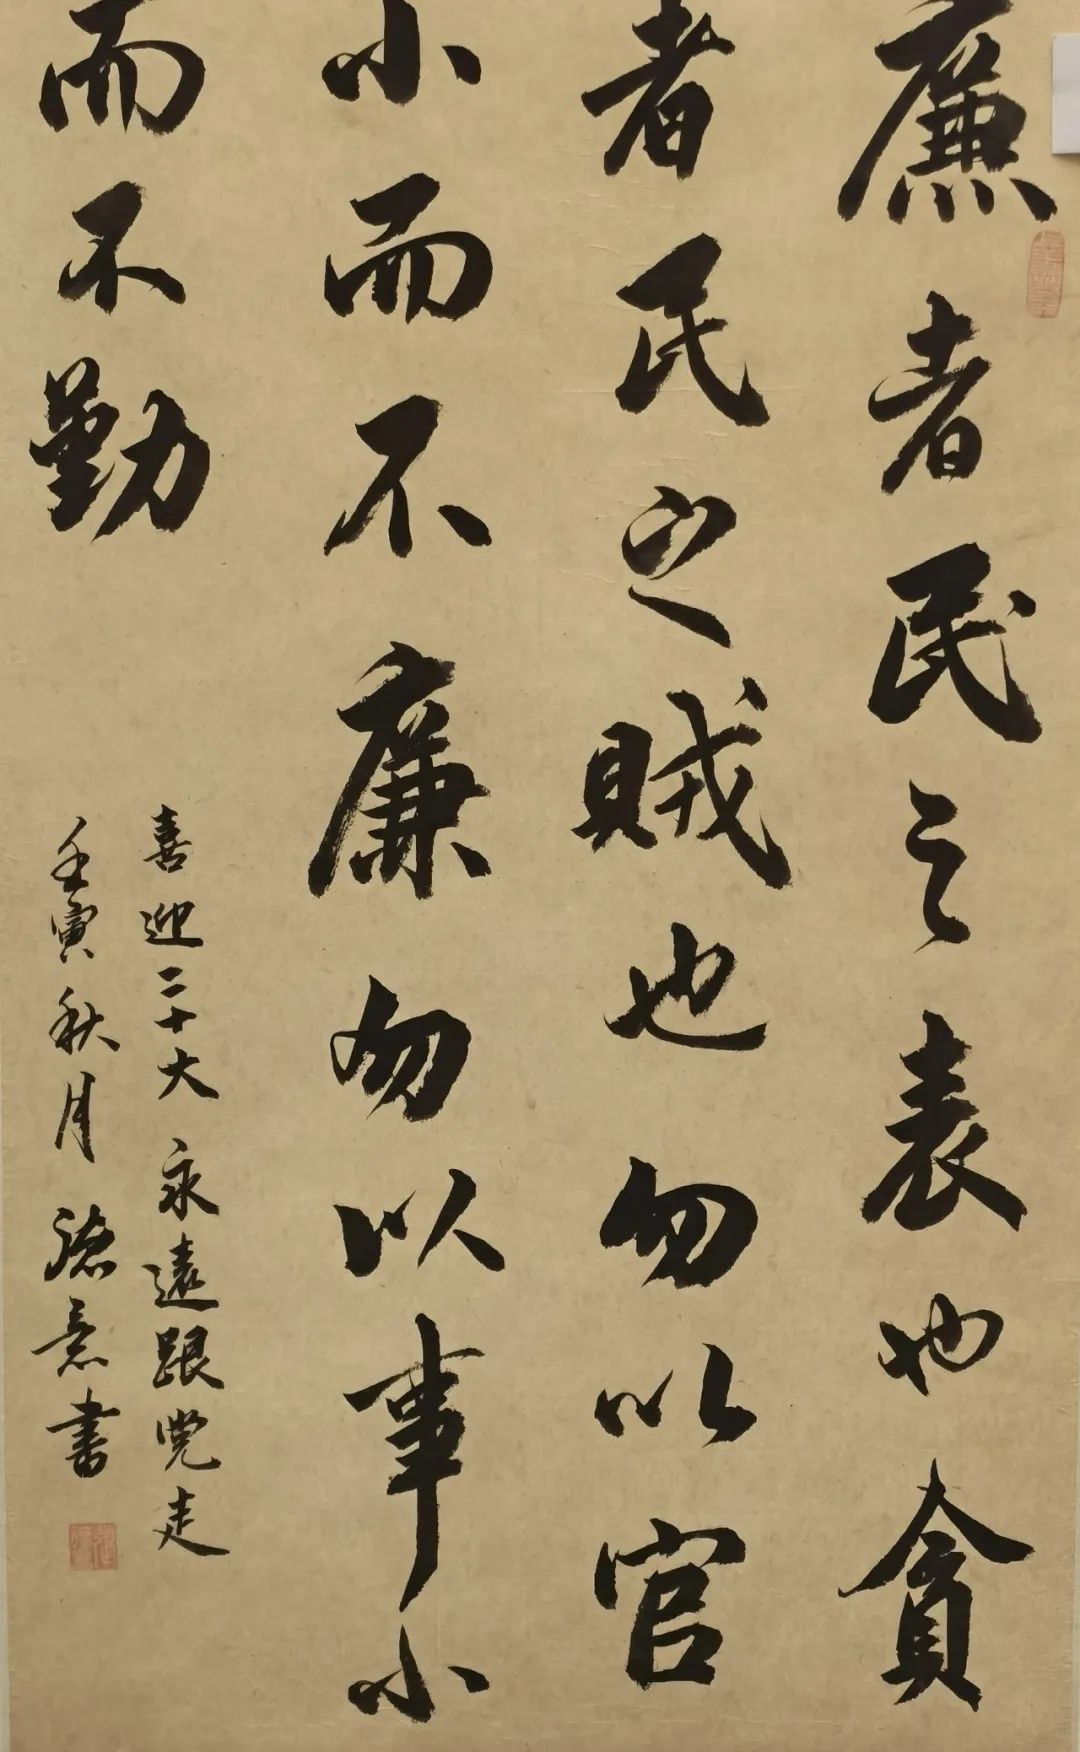 廉者民之表也貪
者民之賊也勿以官
小而不廉勿以事小
而不勤
喜迎二十大永遠跟党走
壬寅秋月德意書